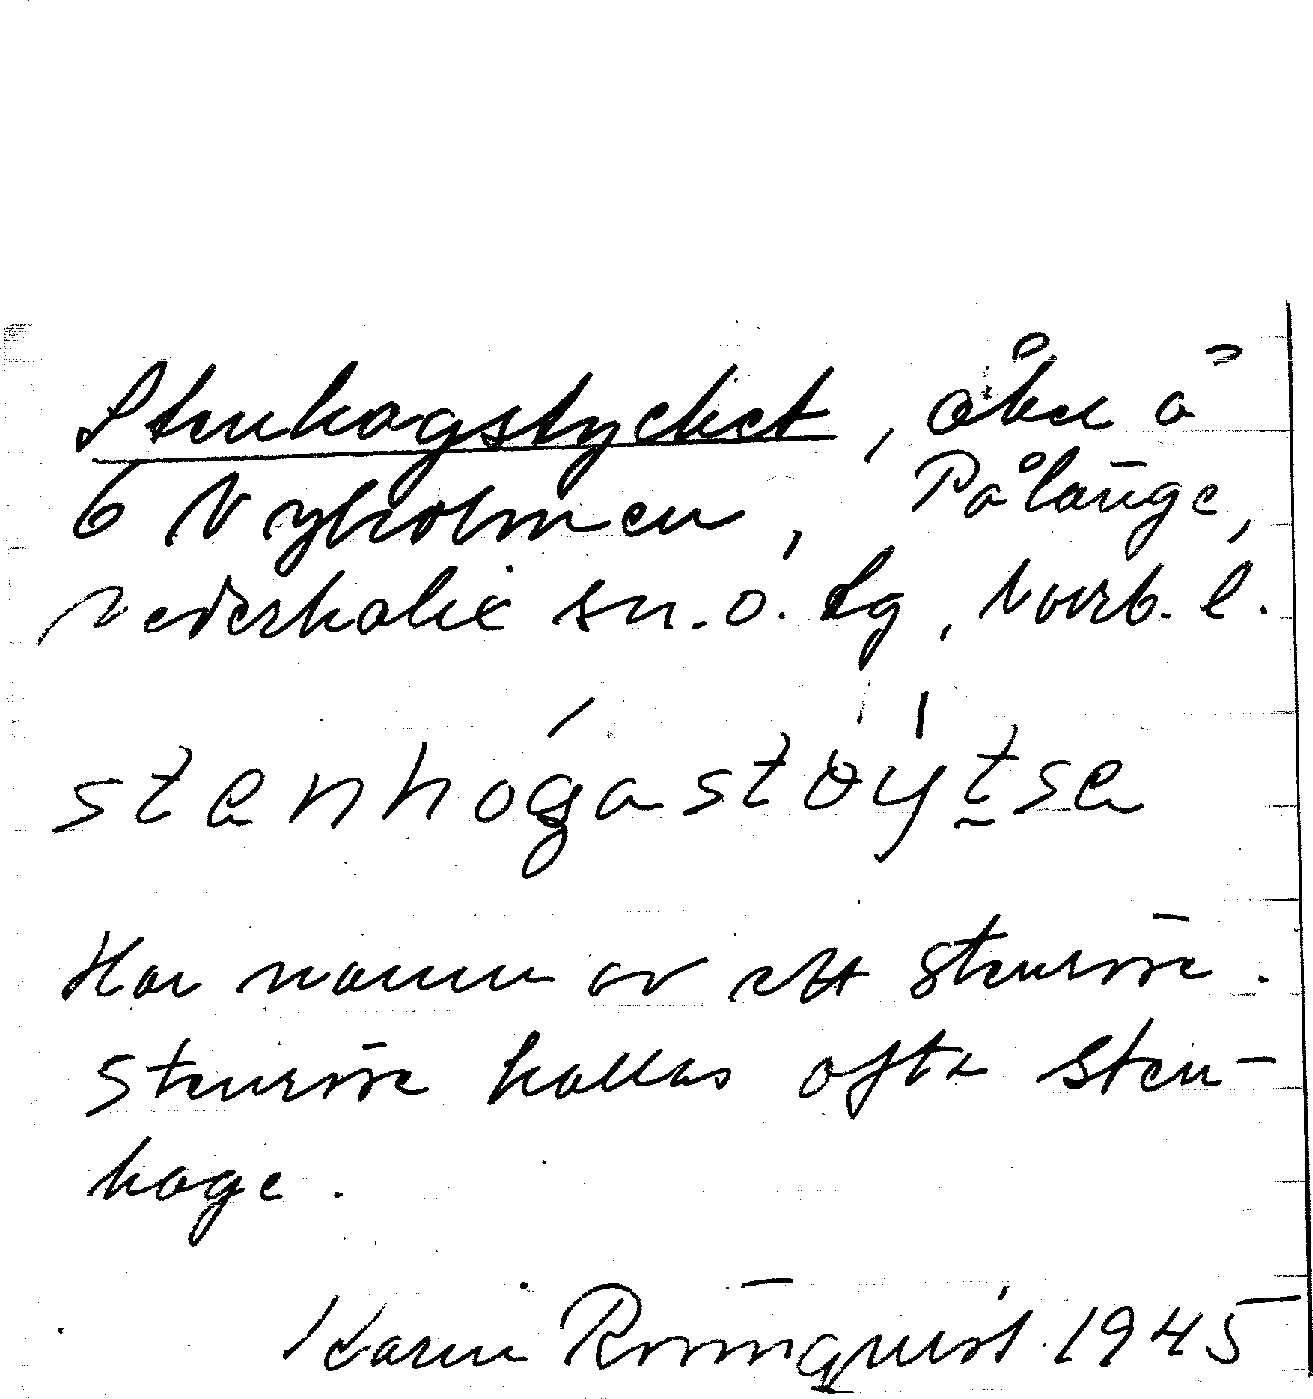 Stenhagstycket, åker å
6 Nyholmen, Pålänge,
Nederkalix sn. o. tg, Norrb. l.
stenhogastöytse
Har namn av ett stenröse.
Stenröse kallas ofta sten-
hage.
Karin Rönnquist 1945